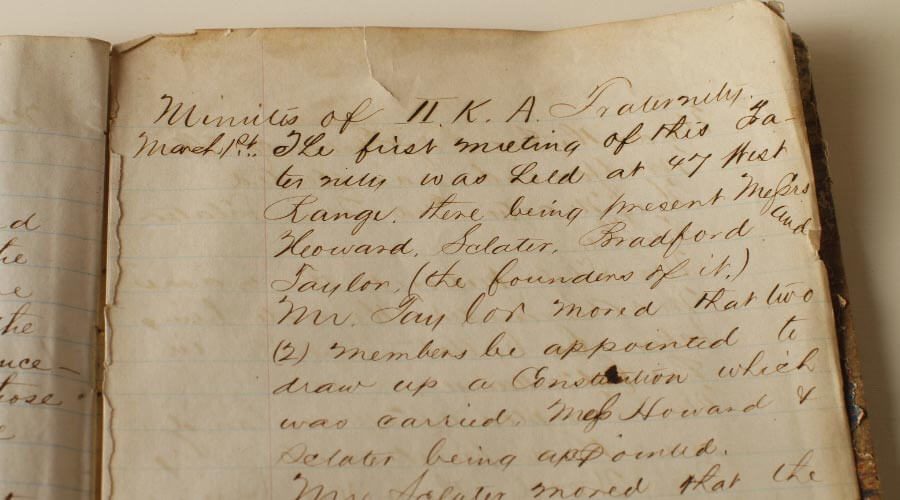 d
he
e
the
uce-
hose
e
Minutes of Π. K. A. Fraternity.
March 1st. The first meeting of this Fa-
ternity was held at 47 West
Range. there being present Messrs
Howard, Sclater, Bradford and
Taylor, (the founders of it.)
Mr. Taylor moved that two
(2) members be appointed to
draw up a Constitution which
was carried. Mess Howard &
Sclater being appointed.
Mr. Sclater moved that the